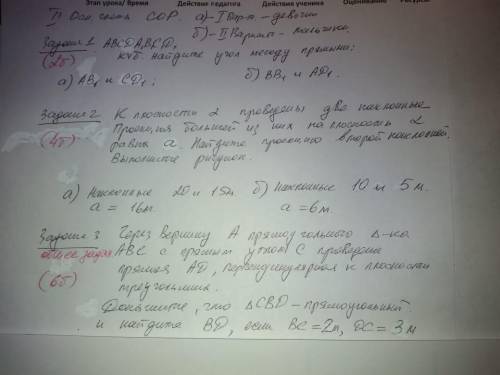 Этап урока/ Время Действия педагога Действия ученика Оценивание Ресурсы
II Осн. часть СОР. а) - I вар-т - девочки
б) - II Вариант - мальчики
Задание 1 ABCDA₁B₁C₁D₁
(2б) куб. найдите угол между прямыми:
а) AB₁ и CD₁; б) BB₁ и AD₁.
Задание 2 К плоскости α проведены две наклонные.
(4б) Проекция большей из них на плоскость α
равна a. Найдите проекцию второй наклонной.
Выполните рисунок.
а) Наклонные 20 и 15м. б) Наклонные 10 и 5 м.
a = 16м. a = 6м.
Задание 3 Через вершину А прямоугольного Δ-ка
общее задан ABC с прямым углом C проведена
(6б) прямая AD, перпендикулярная к плоскости
треугольника.
Докажите, что ΔCBD - прямоугольный
и найдите BD, если BC = 2м, DC = 3м